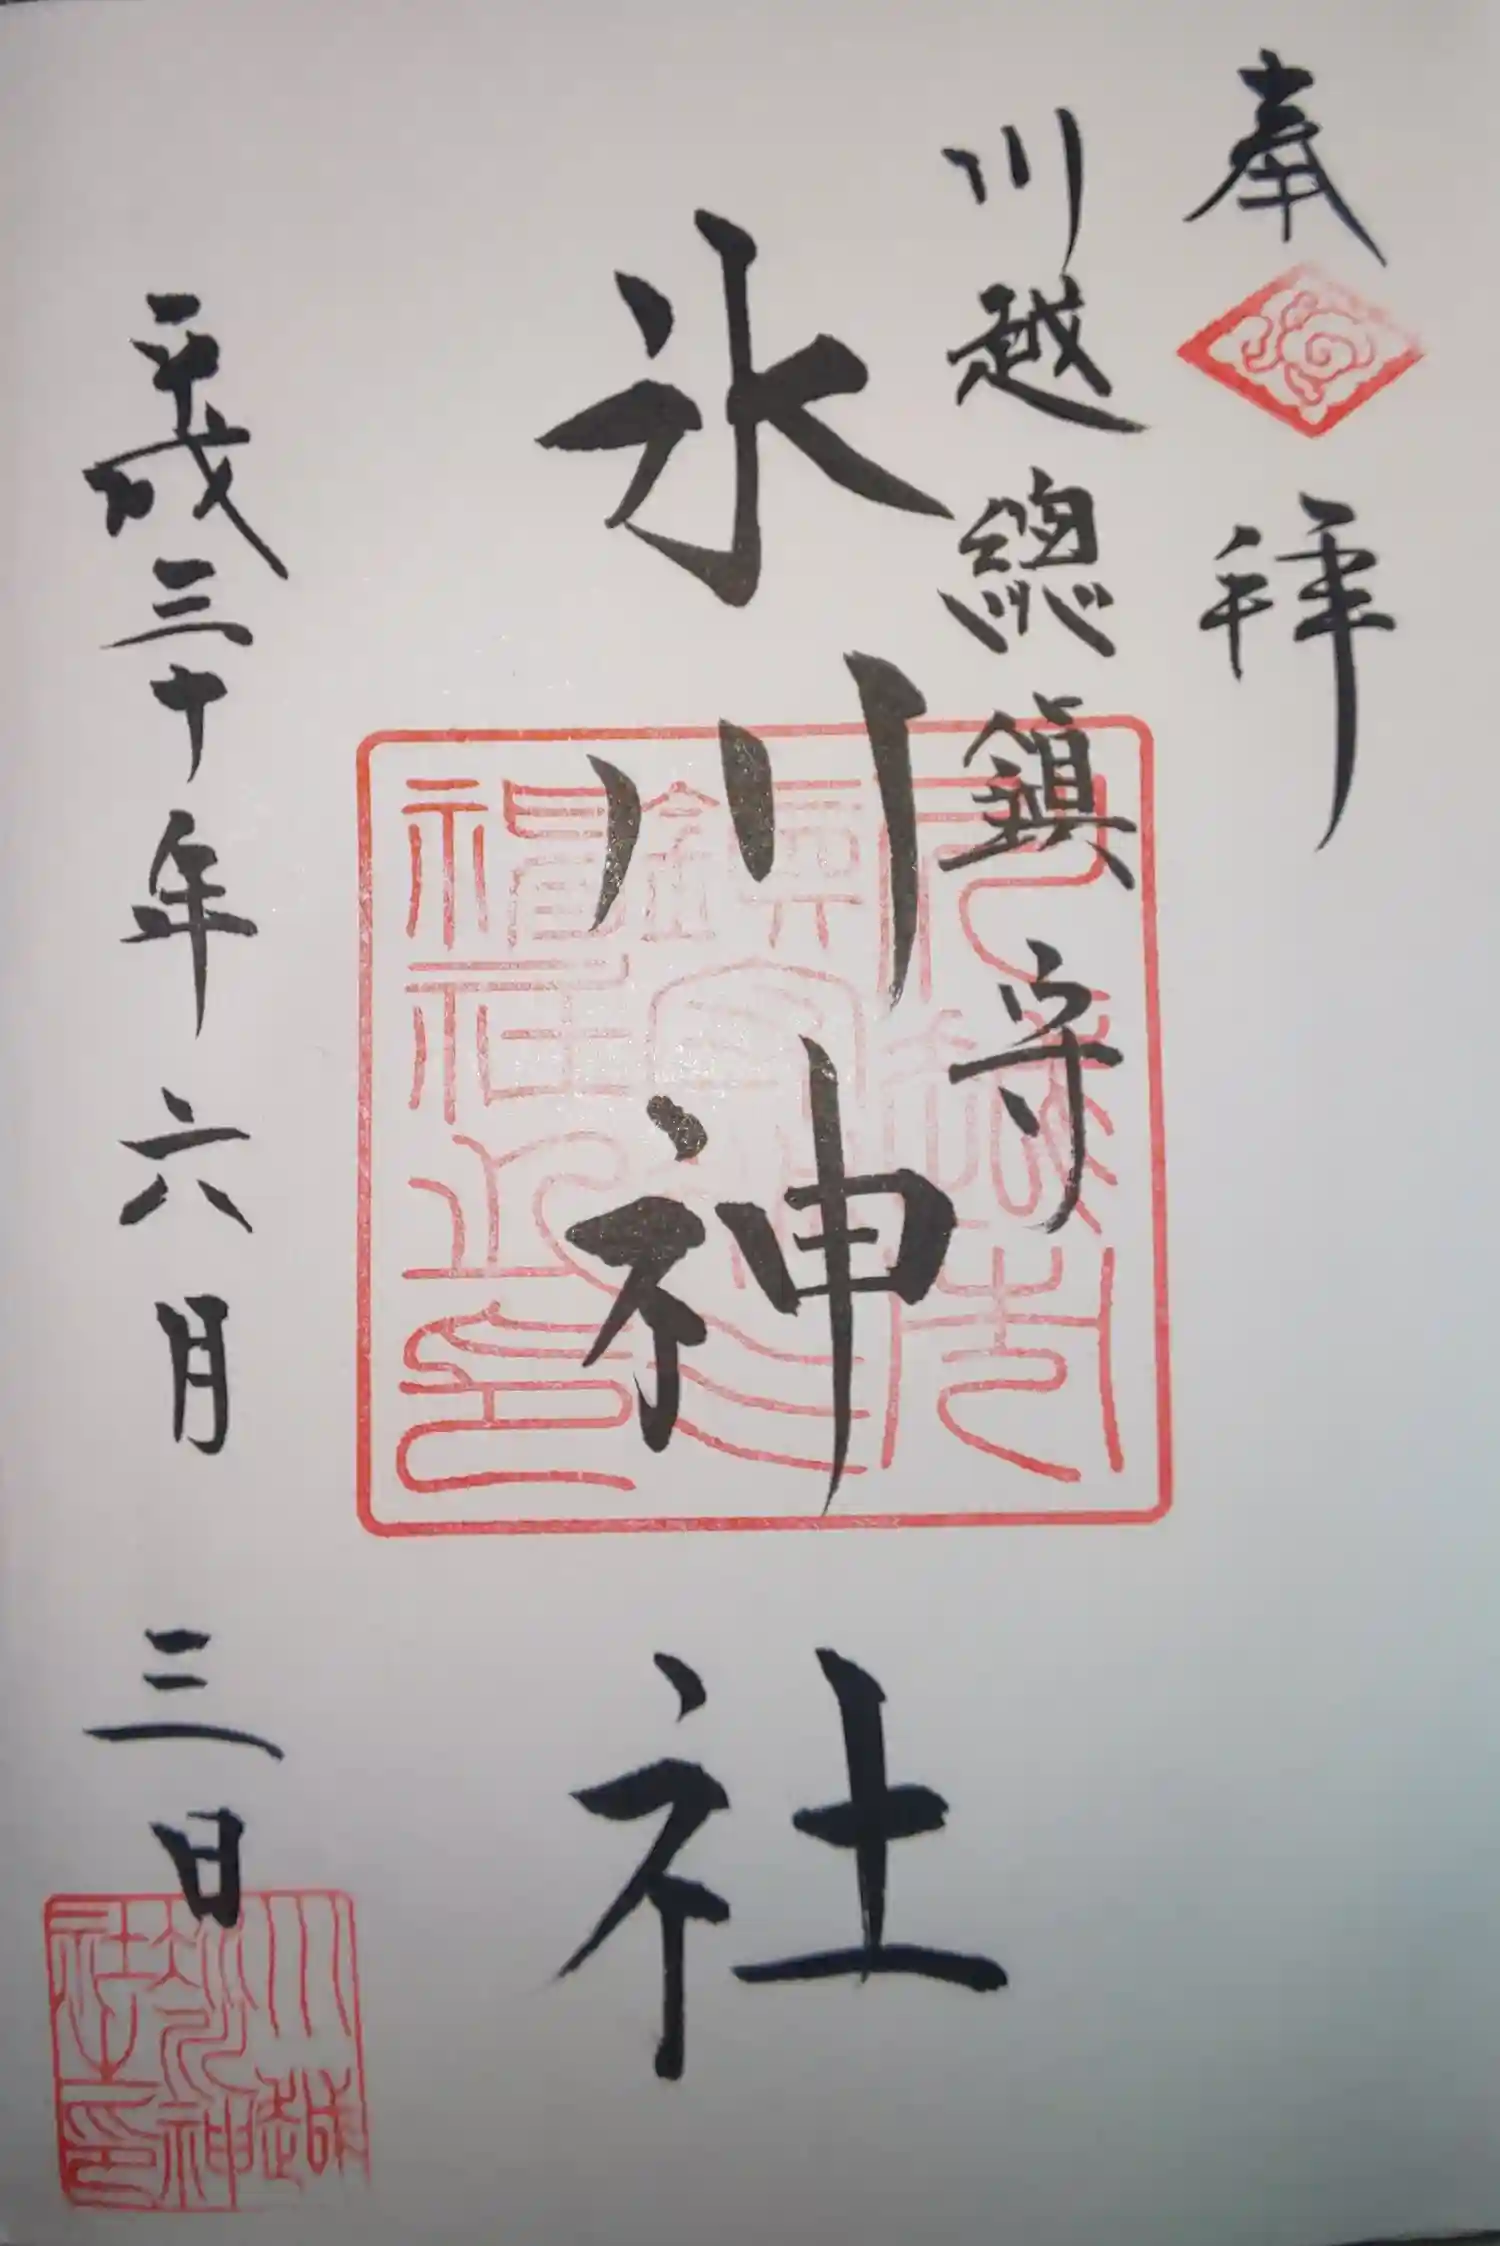 奉拝
川越總鎮守
氷川神社
平成三十年六月三日
川越氷川神社之印